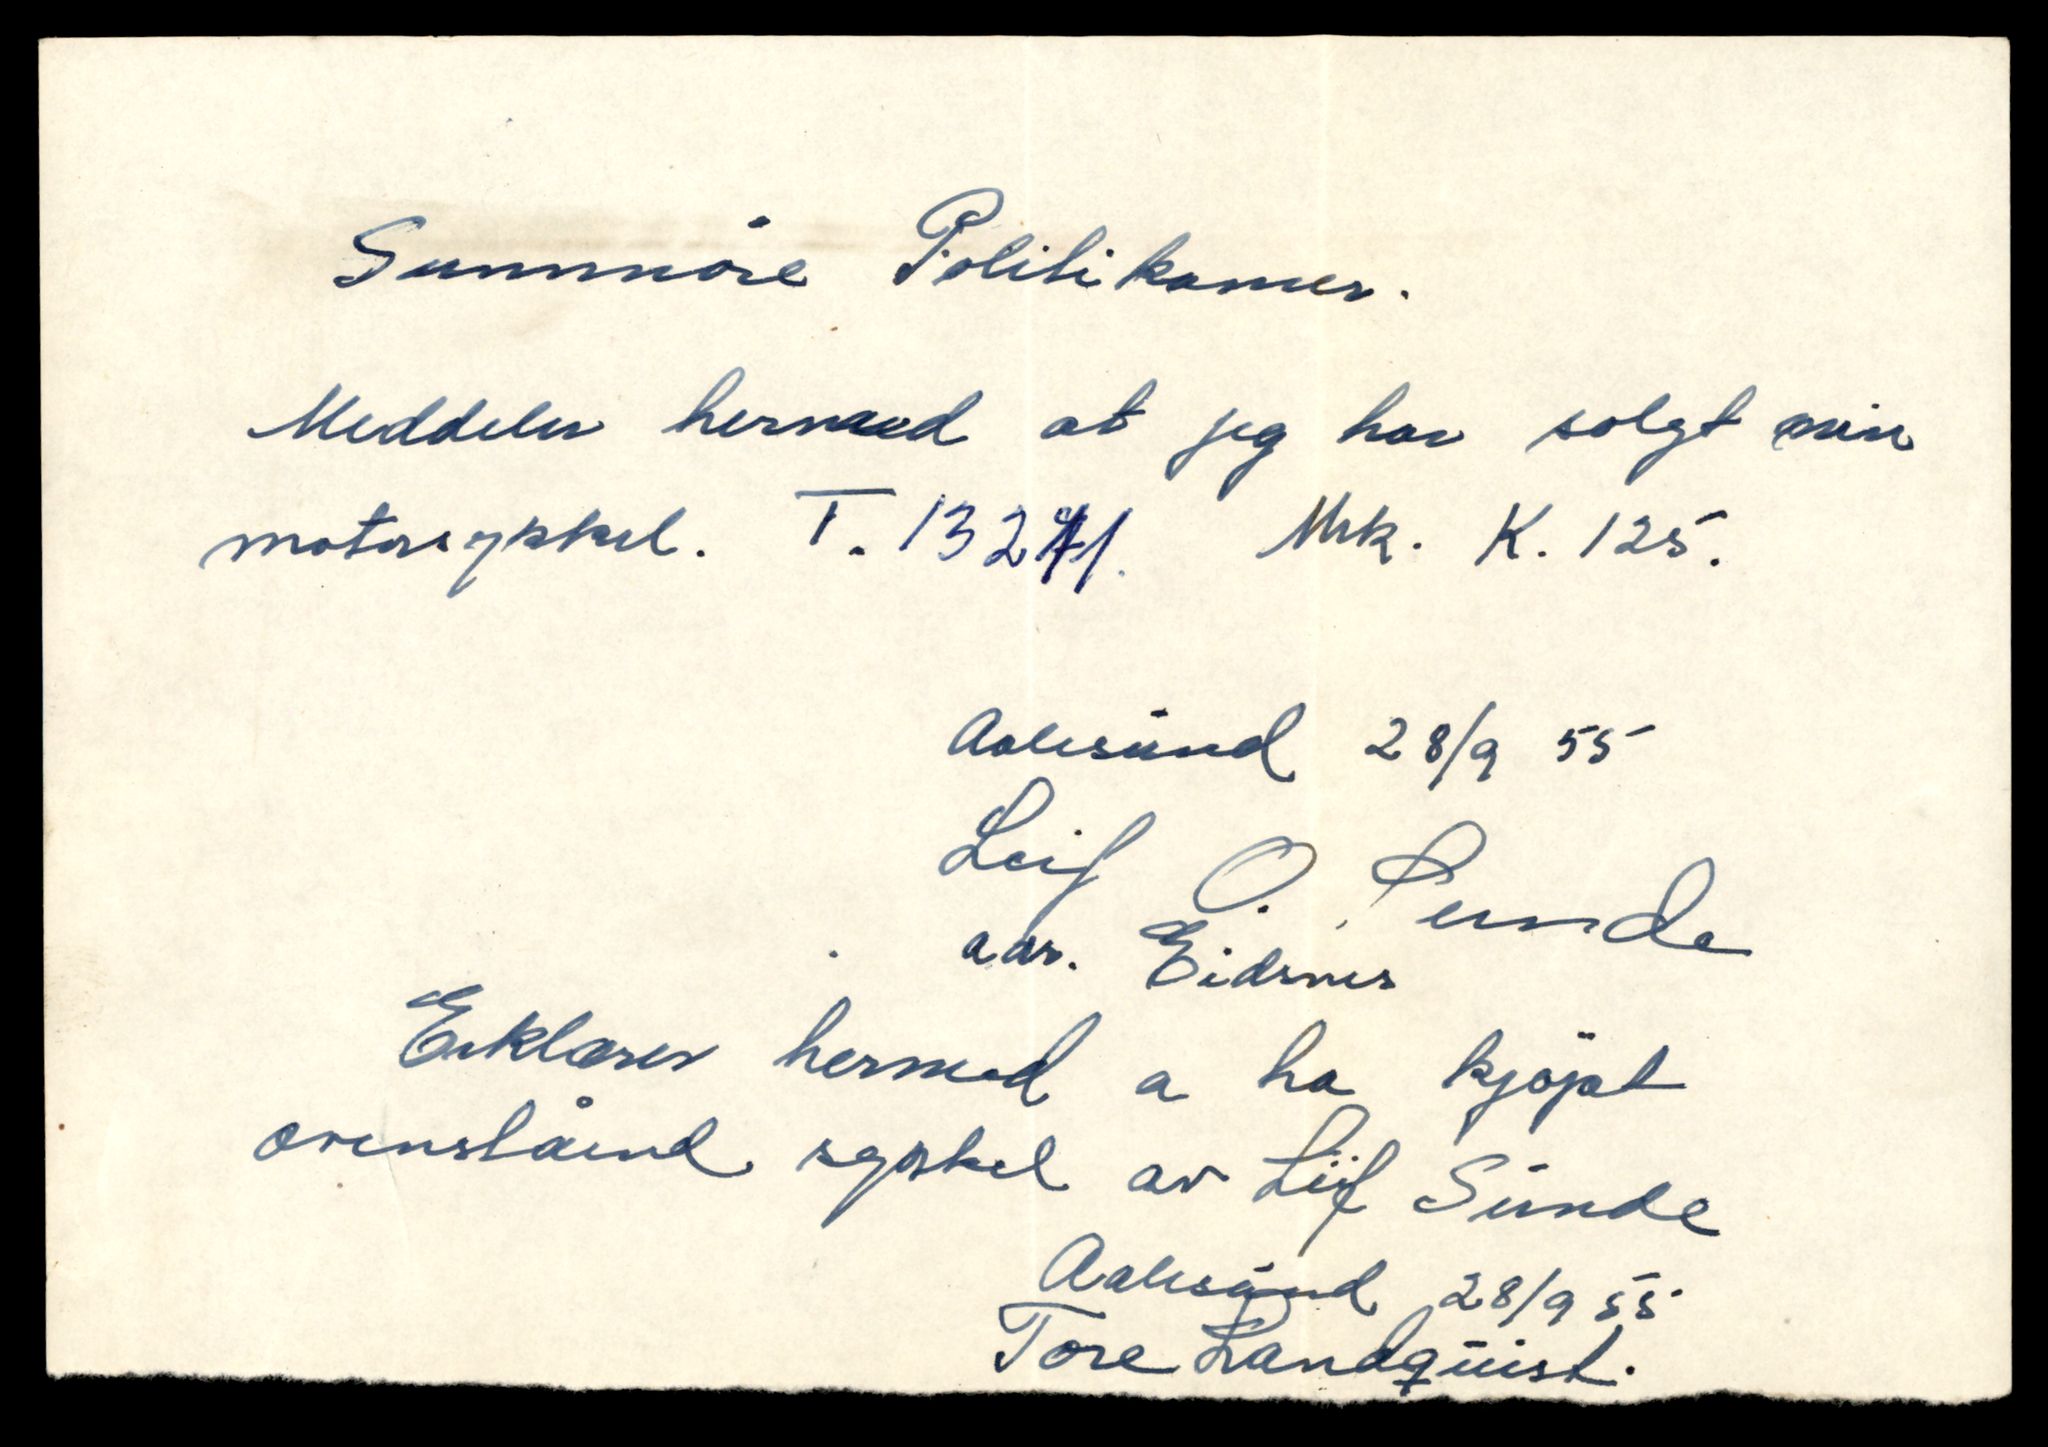 Sunnmöre Politikamer.
Meddeler hermed at jeg har solgt min
motorsykkel. T. 13271. Mrk. K. 125.
Aalesund 28/9 55
Leif O. Sunde
adr. Eidsnes
Erklærer hermed a ha kjöpt
ovenståend sykkel av Leif Sunde
Aalesund 28/9 55
Tore Landquist.